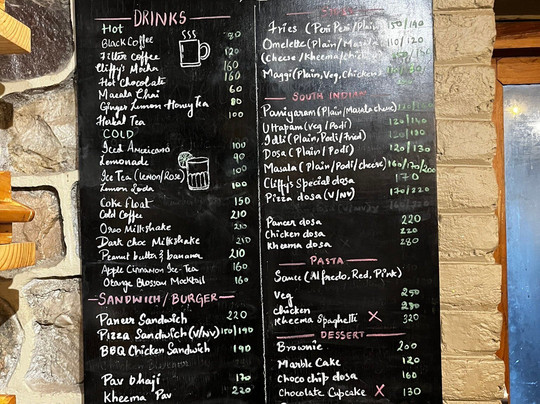 DRINKS
Hot
Black Coffee 80
Filter Coffee 120
Cliffy's Mocha 160
Hot Chocolate 160
Masala Chai 60
Ginger Lemon Honey Tea 80
Habal Tea 100
COLD
Iced Americano 100
Lemonade 90
Ice Tea (Lemon/Rose) 100
Lemon Soda 100
Coke Float 150
Cold Coffee 210
Oreo Milkshake 210
Dark choc Milkshake 210
Peanut butter & banana 210
Apple Cinnamon Ice-Tea 160
Orange Blossom Mocktail 160
SANDWICH/BURGER
Paneer Sandwich 220
Pizza Sandwich (V/NV) 180/190
BBQ Chicken Sandwich 190
Pav bhaji 170
Kheema Pav 220
Fries (Peri Peri/Plain) 150/140
Omelette (Plain/Masala) 110/120
(Cheese/Kheema/Chicken)
Maggi (Plain, Veg, Chicken)
SOUTH INDIAN
Paniyaram (Plain/Masala cheese)
Uttapam (Veg/Podi) 120/140
Idli (Plain, Podi/Fried) 120/130
Dosa (Plain/Podi) 120/130
Masala (Plain/Podi/cheese) 160/170/200
Cliffy's Special dosa 170
Pizza dosa (V/NV) 170/220
Paneer dosa 220
Chicken dosa 220
Kheema dosa 280
PASTA
Sauce (Alfredo, Red, Pink)
Veg 250
Chicken 280
Kheema Spaghetti X 320
DESSERT
Brownie 200
Marble Cake 120
Choco chip dosa 160
Chocolate Cupcake X 130